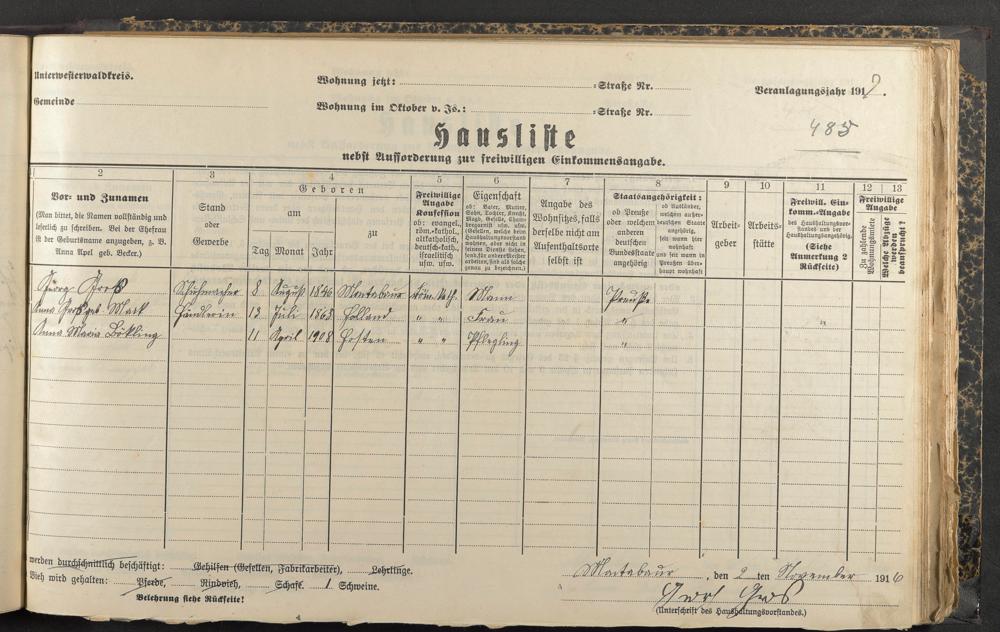 Unterwesterwaldkreis.
Gemeinde
Wohnung jetzt: -Straße Nr.
Wohnung im Oktober v. Js.: -Straße Nr.
Veranlagungsjahr 1917.
485
Hausliste
nebst Aufforderung zur freiwilligen Einkommensangabe.
2 3 4 5 6 7 8 9 10 11 12 13
Vor- und Zunamen
(Man bittet, die Namen vollständig und
leserlich zu schreiben. Bei der Ehefrau
ist der Geburtsname anzugeben, z. B.
Anna Apel geb. Becker.)
Stand
oder
Gewerbe
Geboren
am
zu
Tag Monat Jahr
Freiwillige
Angabe
Konfession
ob: evangel.,
röm.-kathol.,
altkatholisch,
deutsch-kath.,
israelitisch
usw. usw.
Eigenschaft
ob: Vater, Mutter,
Sohn, Tochter, Knecht,
Magd, Geselle,
Angabe des
Wohnsitzes, falls
derselbe nicht am
Aufenthaltsorte
selbst ist
Staatsangehörigkeit:
ob Preuße
oder welchem
anderen
deutschen
Bundesstaate
angehörig
ob Ausländer,
welchem außer-
deutschen Staate
angehörig,
seit wann hier
wohnhaft
und seit wann in
Preußen über-
haupt wohnhaft
Arbeit-
geber
Arbeits-
stätte
Freiwill. Ein-
komm.-Angabe
des Haushaltungsvor-
standes und der
Haushaltungsangehörig.
(Siehe
Anmerkung 2
Rückseite)
Freiwillige
Angabe
Zu zahlende
Wohnungsmiete
Welche Abzüge
werden
beansprucht?
Georg Gros Schuhmacher 8 August 1846 Montabaur röm. Kath. Mann Preuße
Anna Gros geb. Mack Händlerin 13 Juli 1863 Holland " " Frau "
Anna Maria Bökling 11 April 1908 Höhten " " Pflegling "
werden durchschnittlich beschäftigt: Gehilfen (Gesellen, Fabrikarbeiter), Lehrlinge.
Vieh wird gehalten: Pferde, Rindvieh, Schafe. 1 Schweine.
Belehrung siehe Rückseite!
Montabaur, den 2 ten November 1916
Gros
(Unterschrift des Haushaltungsvorstandes.)